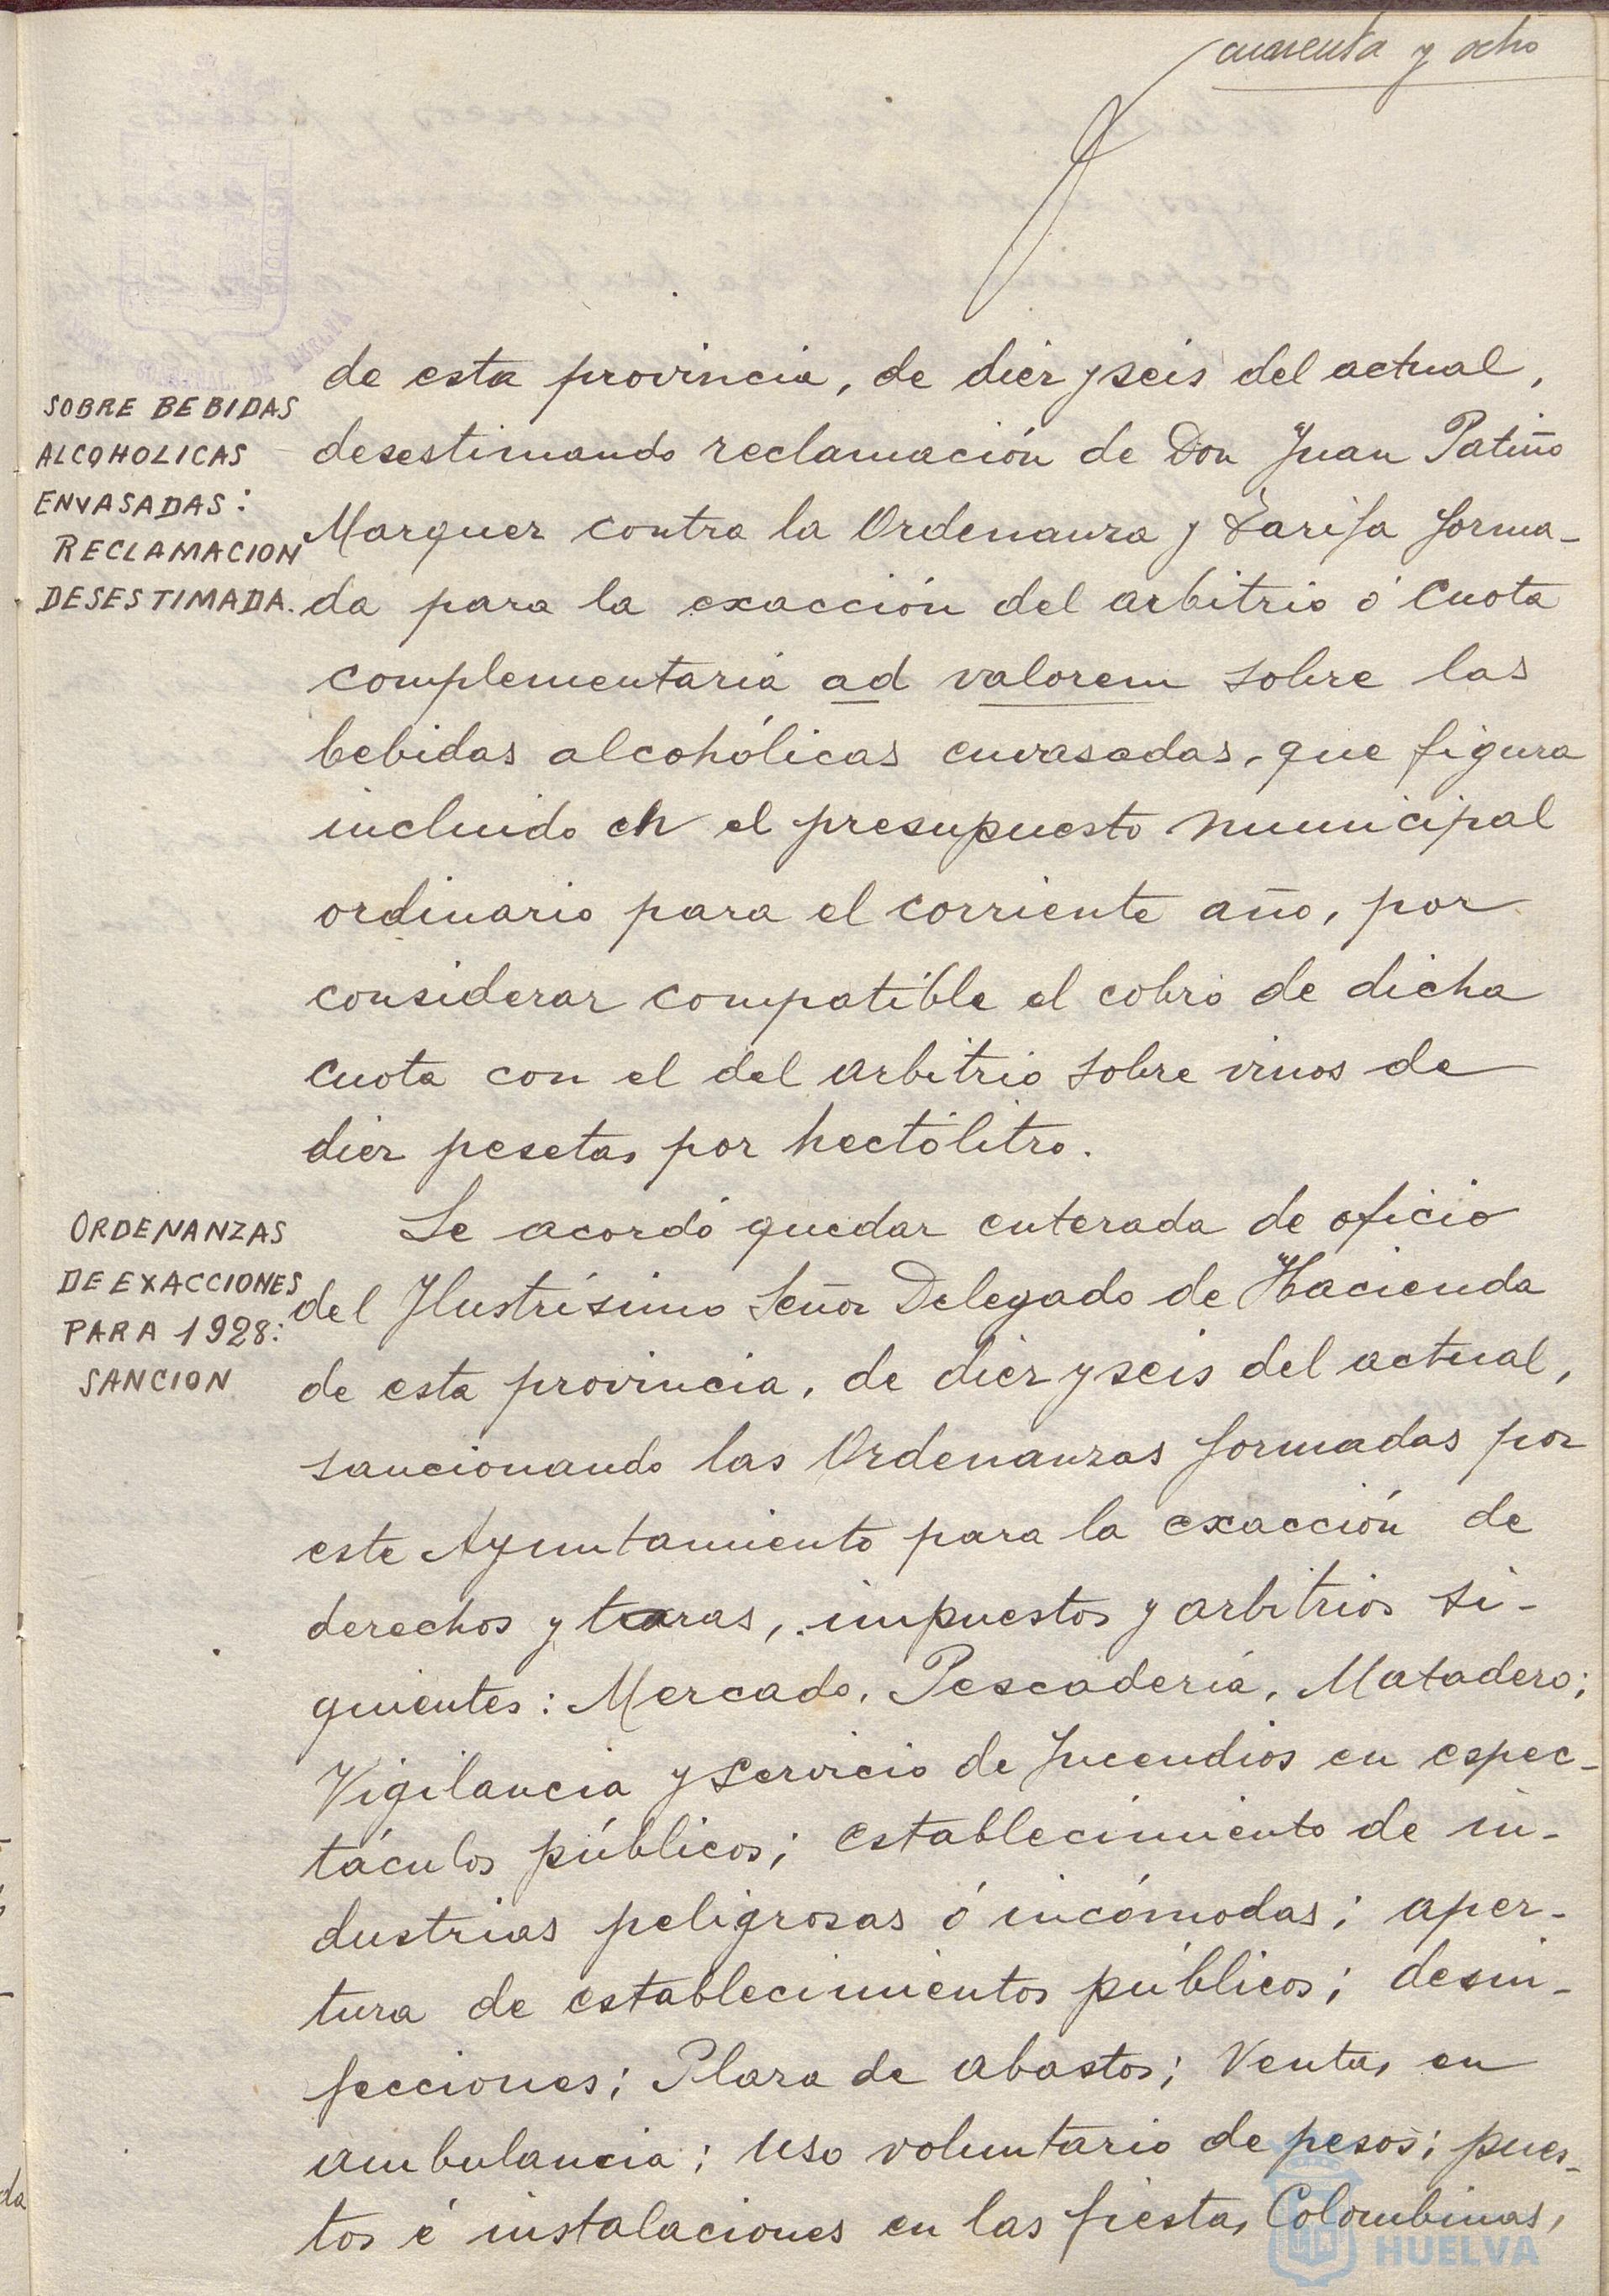 cuarenta y ocho
SOBRE BEBIDAS
ALCOHOLICAS
ENVASADAS:
RECLAMACION
DESESTIMADA.
de esta provincia, de diez y seis del actual,
desestimando reclamación de Don Juan Patiño
Marquez contra la Ordenanza y Tarifa forma-
da para la exacción del arbitrio ó cuota
complementaria ad valorem sobre las
bebidas alcohólicas envasadas, que figura
incluido en el presupuesto municipal
ordinario para el corriente año, por
considerar compatible el cobro de dicha
cuota con el del arbitrio sobre vinos de
diez pesetas por hectólitro.
ORDENANZAS
DE EXACCIONES
PARA 1928:
SANCION
Se acordó quedar enterada de oficio
del Ilustrísimo Señor Delegado de Hacienda
de esta provincia, de diez y seis del actual,
sancionando las Ordenanzas formadas por
este Ayuntamiento para la exacción de
derechos y tasas, impuestos y arbitrios si-
guientes: Mercado, Pescadería, Matadero;
Vigilancia y servicio de Incendios en espec-
táculos públicos; establecimiento de in-
dustrias peligrosas ó incómodas; aper-
tura de establecimientos públicos; desin-
fecciones; Plaza de abastos; Ventas en
ambulancia; uso voluntario de pesos; pues-
tos é instalaciones en las fiestas Colombinas,
HUELVA